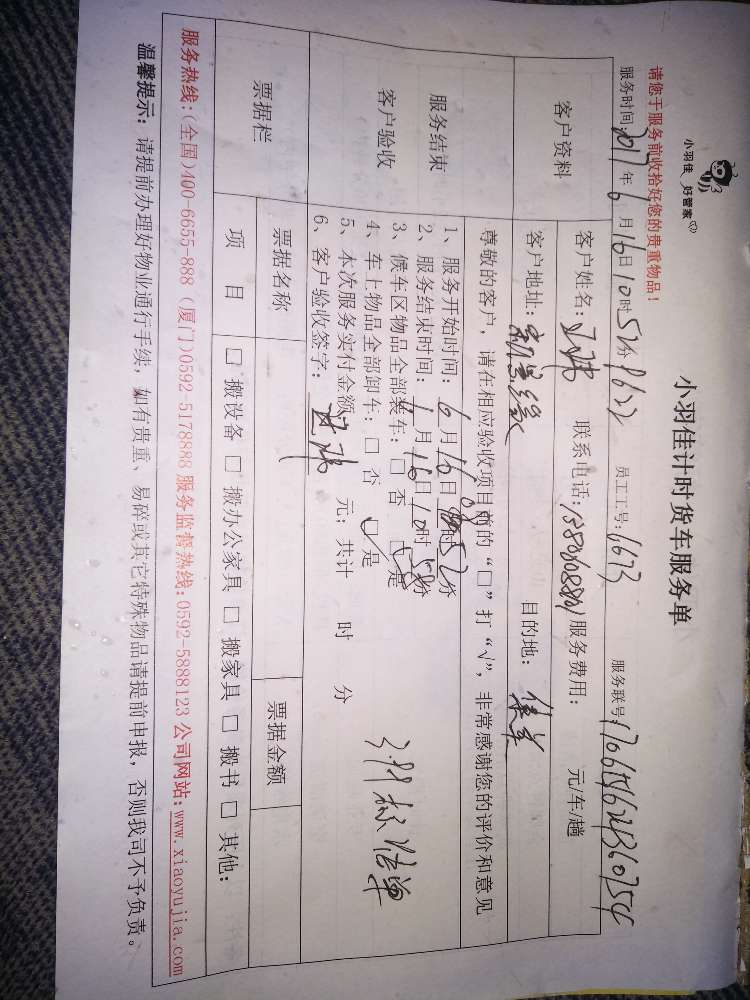 小羽佳 好管家
小羽佳计时货车服务单
请您于服务前收拾好您的贵重物品！
服务时间：2017年6月16日10时52分 员工工号：1673 服务联号：
客户资料
客户姓名： 联系电话： 服务费用： 元/车/趟
客户地址： 目的地：
尊敬的客户，请在相应验收项目前的“□”打“√”，非常感谢您的评价和意见
服务结束
客户验收
1、服务开始时间：6月16日 时52分
2、服务结束时间： 月16日10时 分
3、候车区物品全部装车：□ 否 □ 是
4、车上物品全部卸车：□ 否 □ 是
5、本次服务实付金额 元；共计 时 分
6、客户验收签字：
票据栏
票据名称 票据金额
项目 □ 搬设备 □ 搬办公家具 □ 搬家具 □ 搬书 □ 其他：
服务热线：(全国)400-6655-888 (厦门)0592-5178888 服务监督热线：0592-5888123 公司网站：www.xiaoyujia.com
温馨提示：请提前办理好物业通行手续，如有贵重、易碎或其它特殊物品请提前申报，否则我司不予负责。